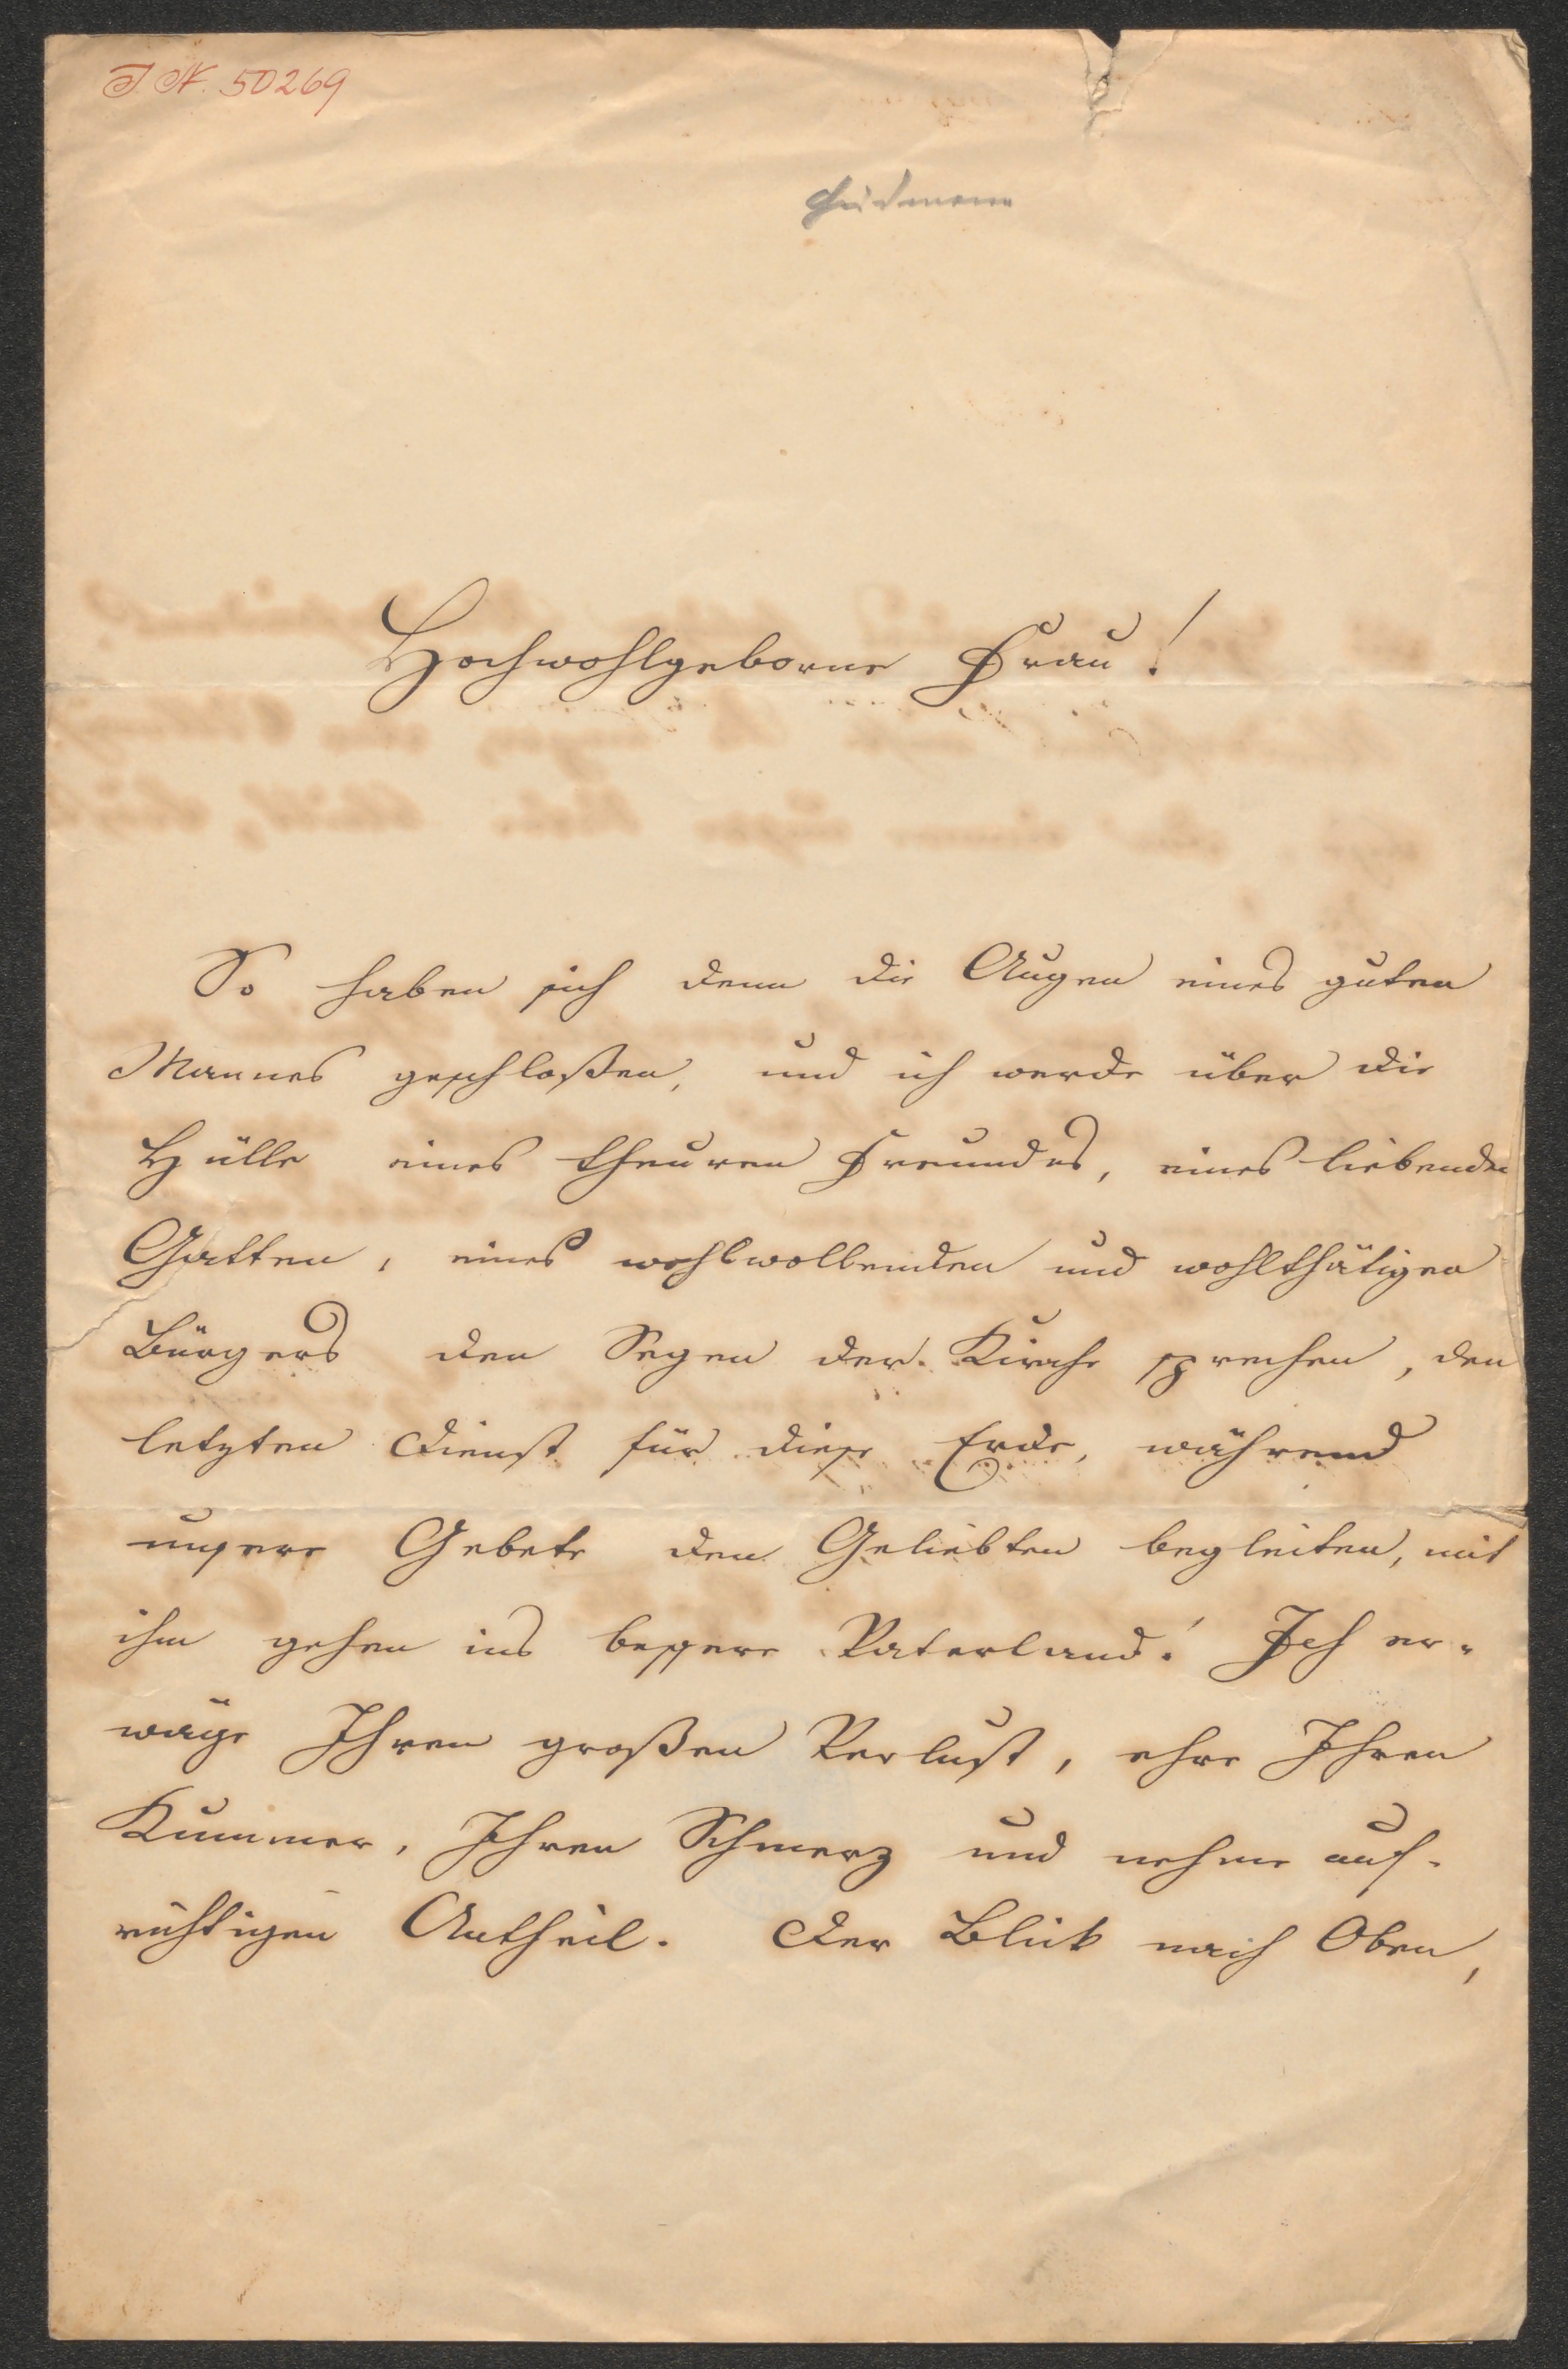 I. N. 50269
Hochwohlgeborne Frau!
So haben sich denn die Augen eines guten
Mannes geschloßen, und ich werde über die
Hülle eines theuren Freundes, eines liebenden
Gatten, eines wohlwollenden und wohlthätigen
Bürgers den Segen der Kirche sprechen, den
letzten Dienst für diese Erde, während
unsere Gebete den Geliebten begleiten, mit
ihm gehen ins bessere Vaterland! Ich er-
wäge Ihren großen Verlust, ehre Ihren
Kummer, Ihren Schmerz und nehme auf-
richtigen Antheil. Der Blick nach Oben,